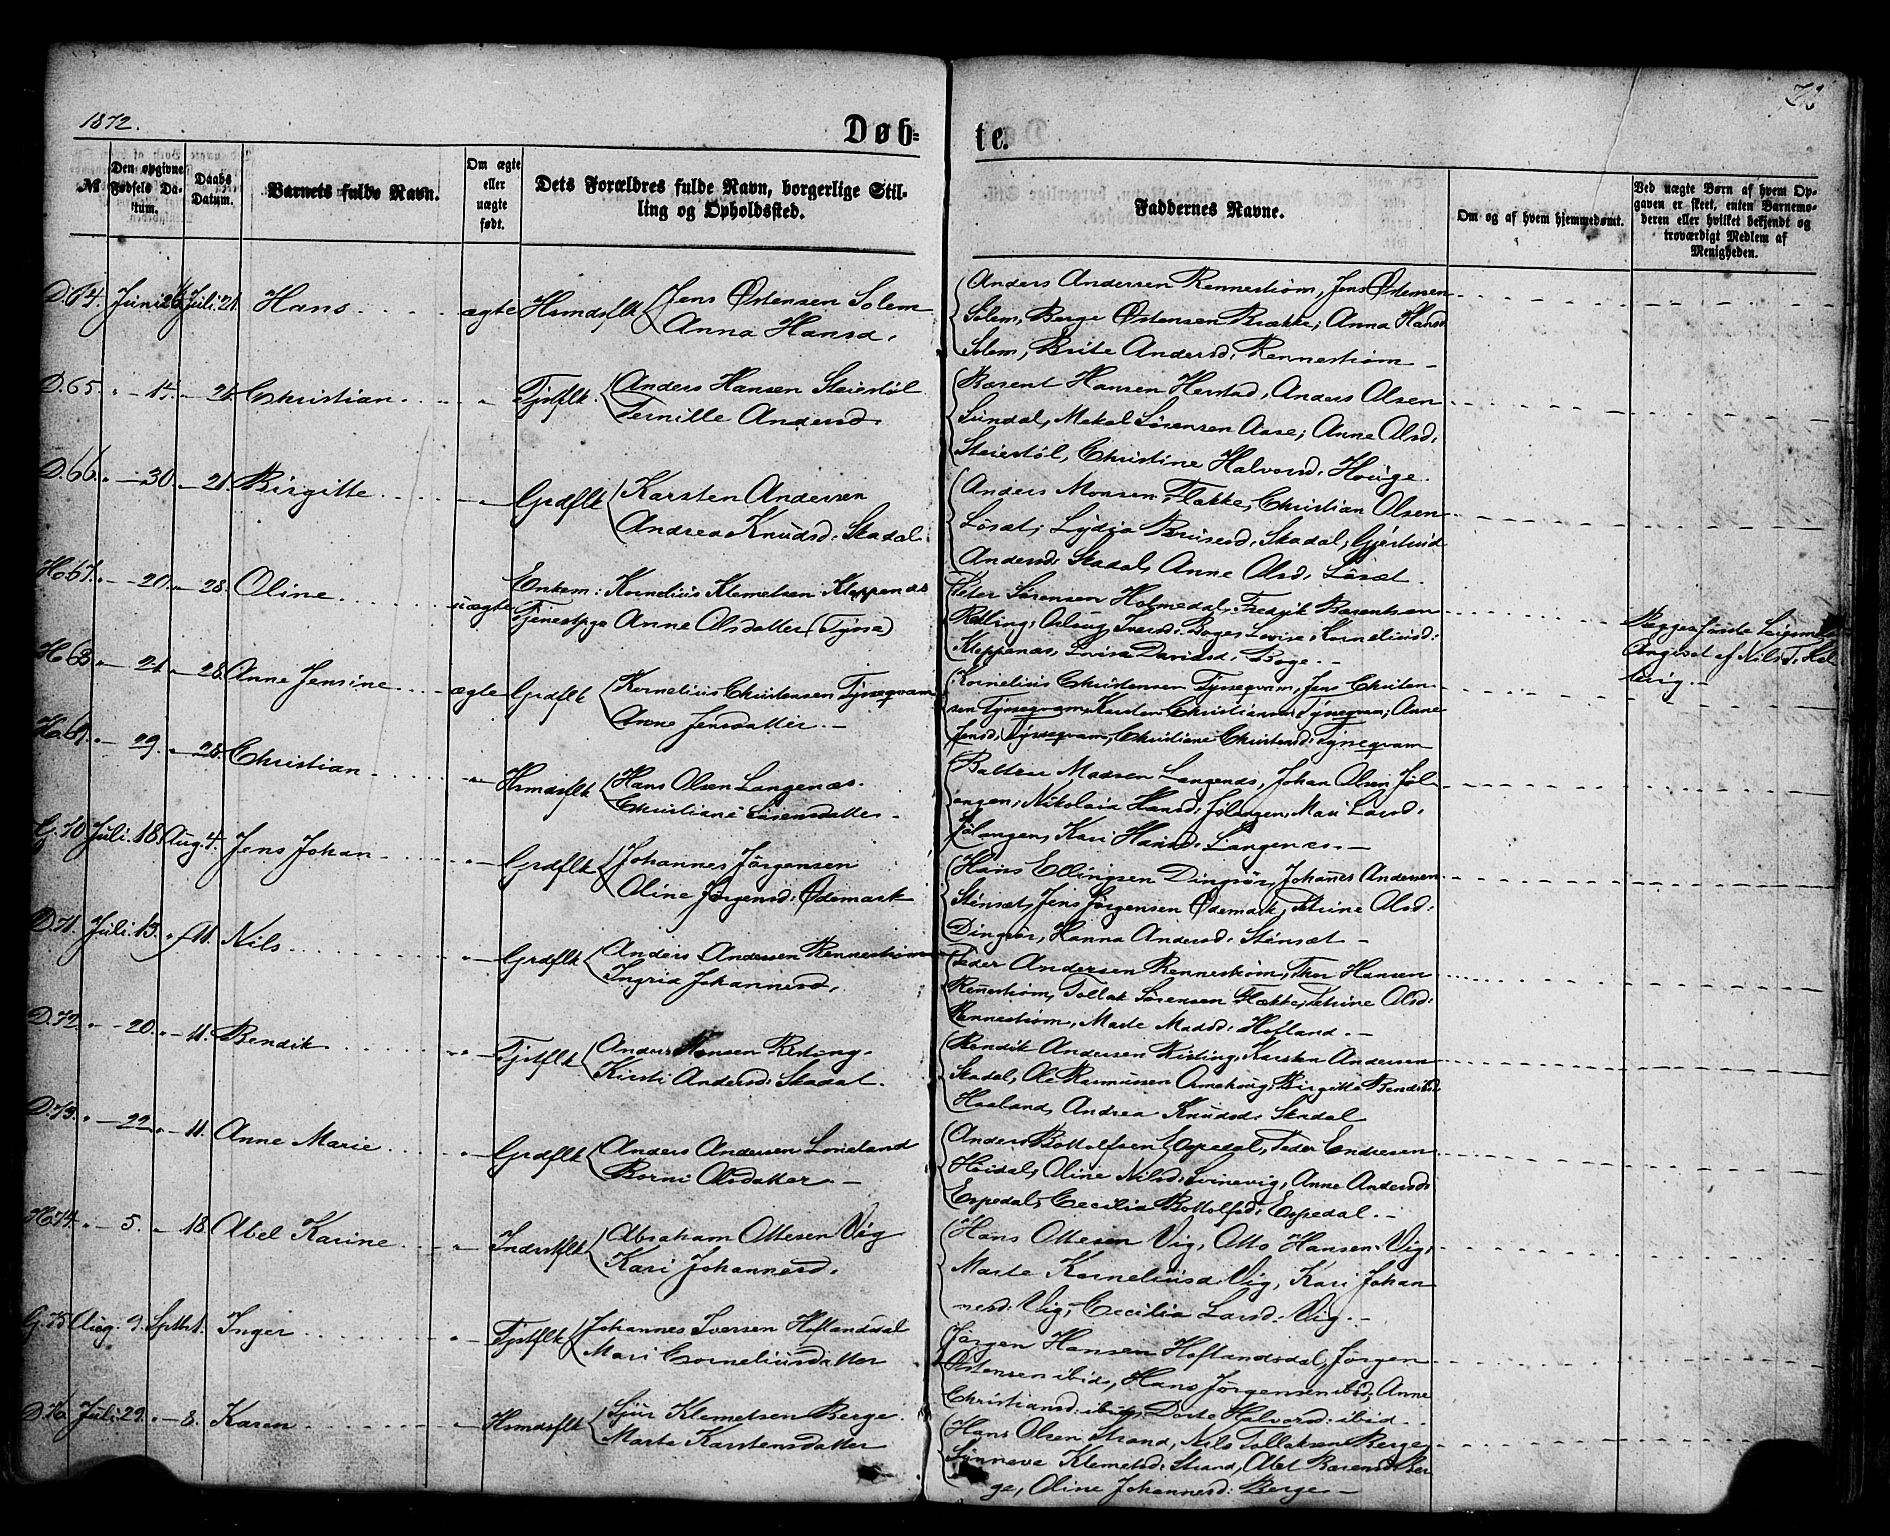 1872.
Døb=
te.
№
Den opgivne Fødsels Da-tum.
Daabs Datum.
Barnets fulde Navn.
Om ægte eller uægte født.
Dets Forældres fulde Navn, borgerlige Stil-
ling og Opholdssted.
Faddernes Navne.
Om og af hvem hjemmedømt.
Ved uægte Børn af hvem Op-
gaven er skeet, enten Barnemo-
deren eller hvilket bekjendt og
troværdigt Medlem af
Menigheden.
D. 64. Juni 26 Juli 21. Hans ægte Hsmdsflk Jens Østensen Solem
Anna Hansd.
Anders Andersen Rennestrøm, Jens Østensen
Solem, Berge Østensen Brække, Anna Hansd
Solem, Brite Andersd. Rennestrøm
D. 65. " 21. Christian " Tjstflk. Anders Hansen Staiestøl
Pernille Andersd.
Bærent Hansen Herstad, Anders Olsen
Sundal, Mekal Sørensen Aase, Anne Olsd.
Staiestøl, Christine Halvorsd. Houge.
D. 66. " 30. " 21. Birgitte " Grdflk Karsten Andersen
Andrea Knudsd. Skadal.
Anders Monsen Flække, Christian Olsen
Løsæt, Lydia Skadal, Gjertrud
Andersd. Skadal, Anne Olsd. Løsæt.
H. 67. " 20. " 28. Oline uægte Enkem: Kornelius Klemetsen Kleppenæs
Tjenestpge Anne Olsdatter (Tynse)
Peter Sørensen Holmedal, Fredrik Bærentsen
Boge, Lovise Kornelius:
Kleppenæs, Lovise Davidsd. Boge.
Begges første Leiermaal
Angivet af
H. 68 " 21. " 28. Anne Jensine ægte Grdflk Kornelius Christensen Tynseqvam
Anne Jensdatter.
Kornelius Christensen Tynseqvam, Jens Christen-
sen Tynseqvam, Karsten Christiansen Tynseqvam, Anne
Jensd. Tynseqvam, Christiane Christensd. Tynseqvam
H. 69. " 29. " 28. Christian " Hsmdsflk Hans Olsen Langenæs.
Christiane Sørensdatter
Baltzer Madsen Langenæs, Johan Olsen Føl-
angen, Nikolaia Hansd. Følangen, Mari Larsd.
Følangen, Kari Hansd. Langenæs.
G. 70 Juli. 18. Aug. 4. Jens Johan " Grdflk Johannes Jørgensen
Oline Jørgensd. Ødemark
Hans Ellingsen Dingsør, Johannes Andersen
Stensæt, Jens Jørgensen Ødemark, Petrine Olsd.
Dingsør, Hanna Andersd. Stensæt
D. 71. Juli. 13. " 11. Nils " Grdflk Anders Andersen Rennestrøm
Ingrid Johannesd.
Peder Andersen Rennestrøm, Thor Hansen
Rennestrøm, Tollak Sørensen Flække, Petrine Olsd.
Rennestrøm, Marte Madsd. Hofland.
D. 72. " 20. " 11. Bendik " Tjstflk Anders Monsen Risting.
Kirsti Andersd. Skadal.
Bendik Andersen Risting, Karsten Andersen
Skadal, Ole Rasmussen Birgitte Bendiksd
Haaland, Andrea Knudsd. Skadal
D. 73. " 22. " 11. Anne Marie " Grdflk Anders Andersen Loneland
Borni Olsdatter.
Anders Bottolfsen Espedal, Peder Endresen
Høidal, Oline Nilsd. Svinevig, Anne Andersd.
Espedal, Cecilia Bottolfsd. Espedal.
H. 74. " 5. " 18. Abel Karine " Indrstflk Abraham Ottesen Vig
Kari Johannesd.
Hans Ottesen Vig, Otto Hansen Vig,
Marte Korneliusd Vig, Kari Johan-
nesd. Vig, Cecilia Larsd. Vig.
G. 75 Aug. 9. Sptb. 1. Inger " Tjstflk Johannes Iversen Hoflandsdal
Mari Corneliusdatter
Jørgen Hansen Hoflandsdal, Jørgen
Østensen ibid, Hans Jørgensen ibid, Anne
Christiansd. ibid, Dorte Halvorsd. ibid.
D. 76. Juli 29. " 8. Karen " Hsmdsflk Sjur Klemetsen Berge.
Marta Karstensdatter
Hans Olsen Strand, Nils Tollaksen Berge,
Synneve Klemetsd. Strand, Abel Bærentsd Ber-
ge, Oline Johannesd. Berge